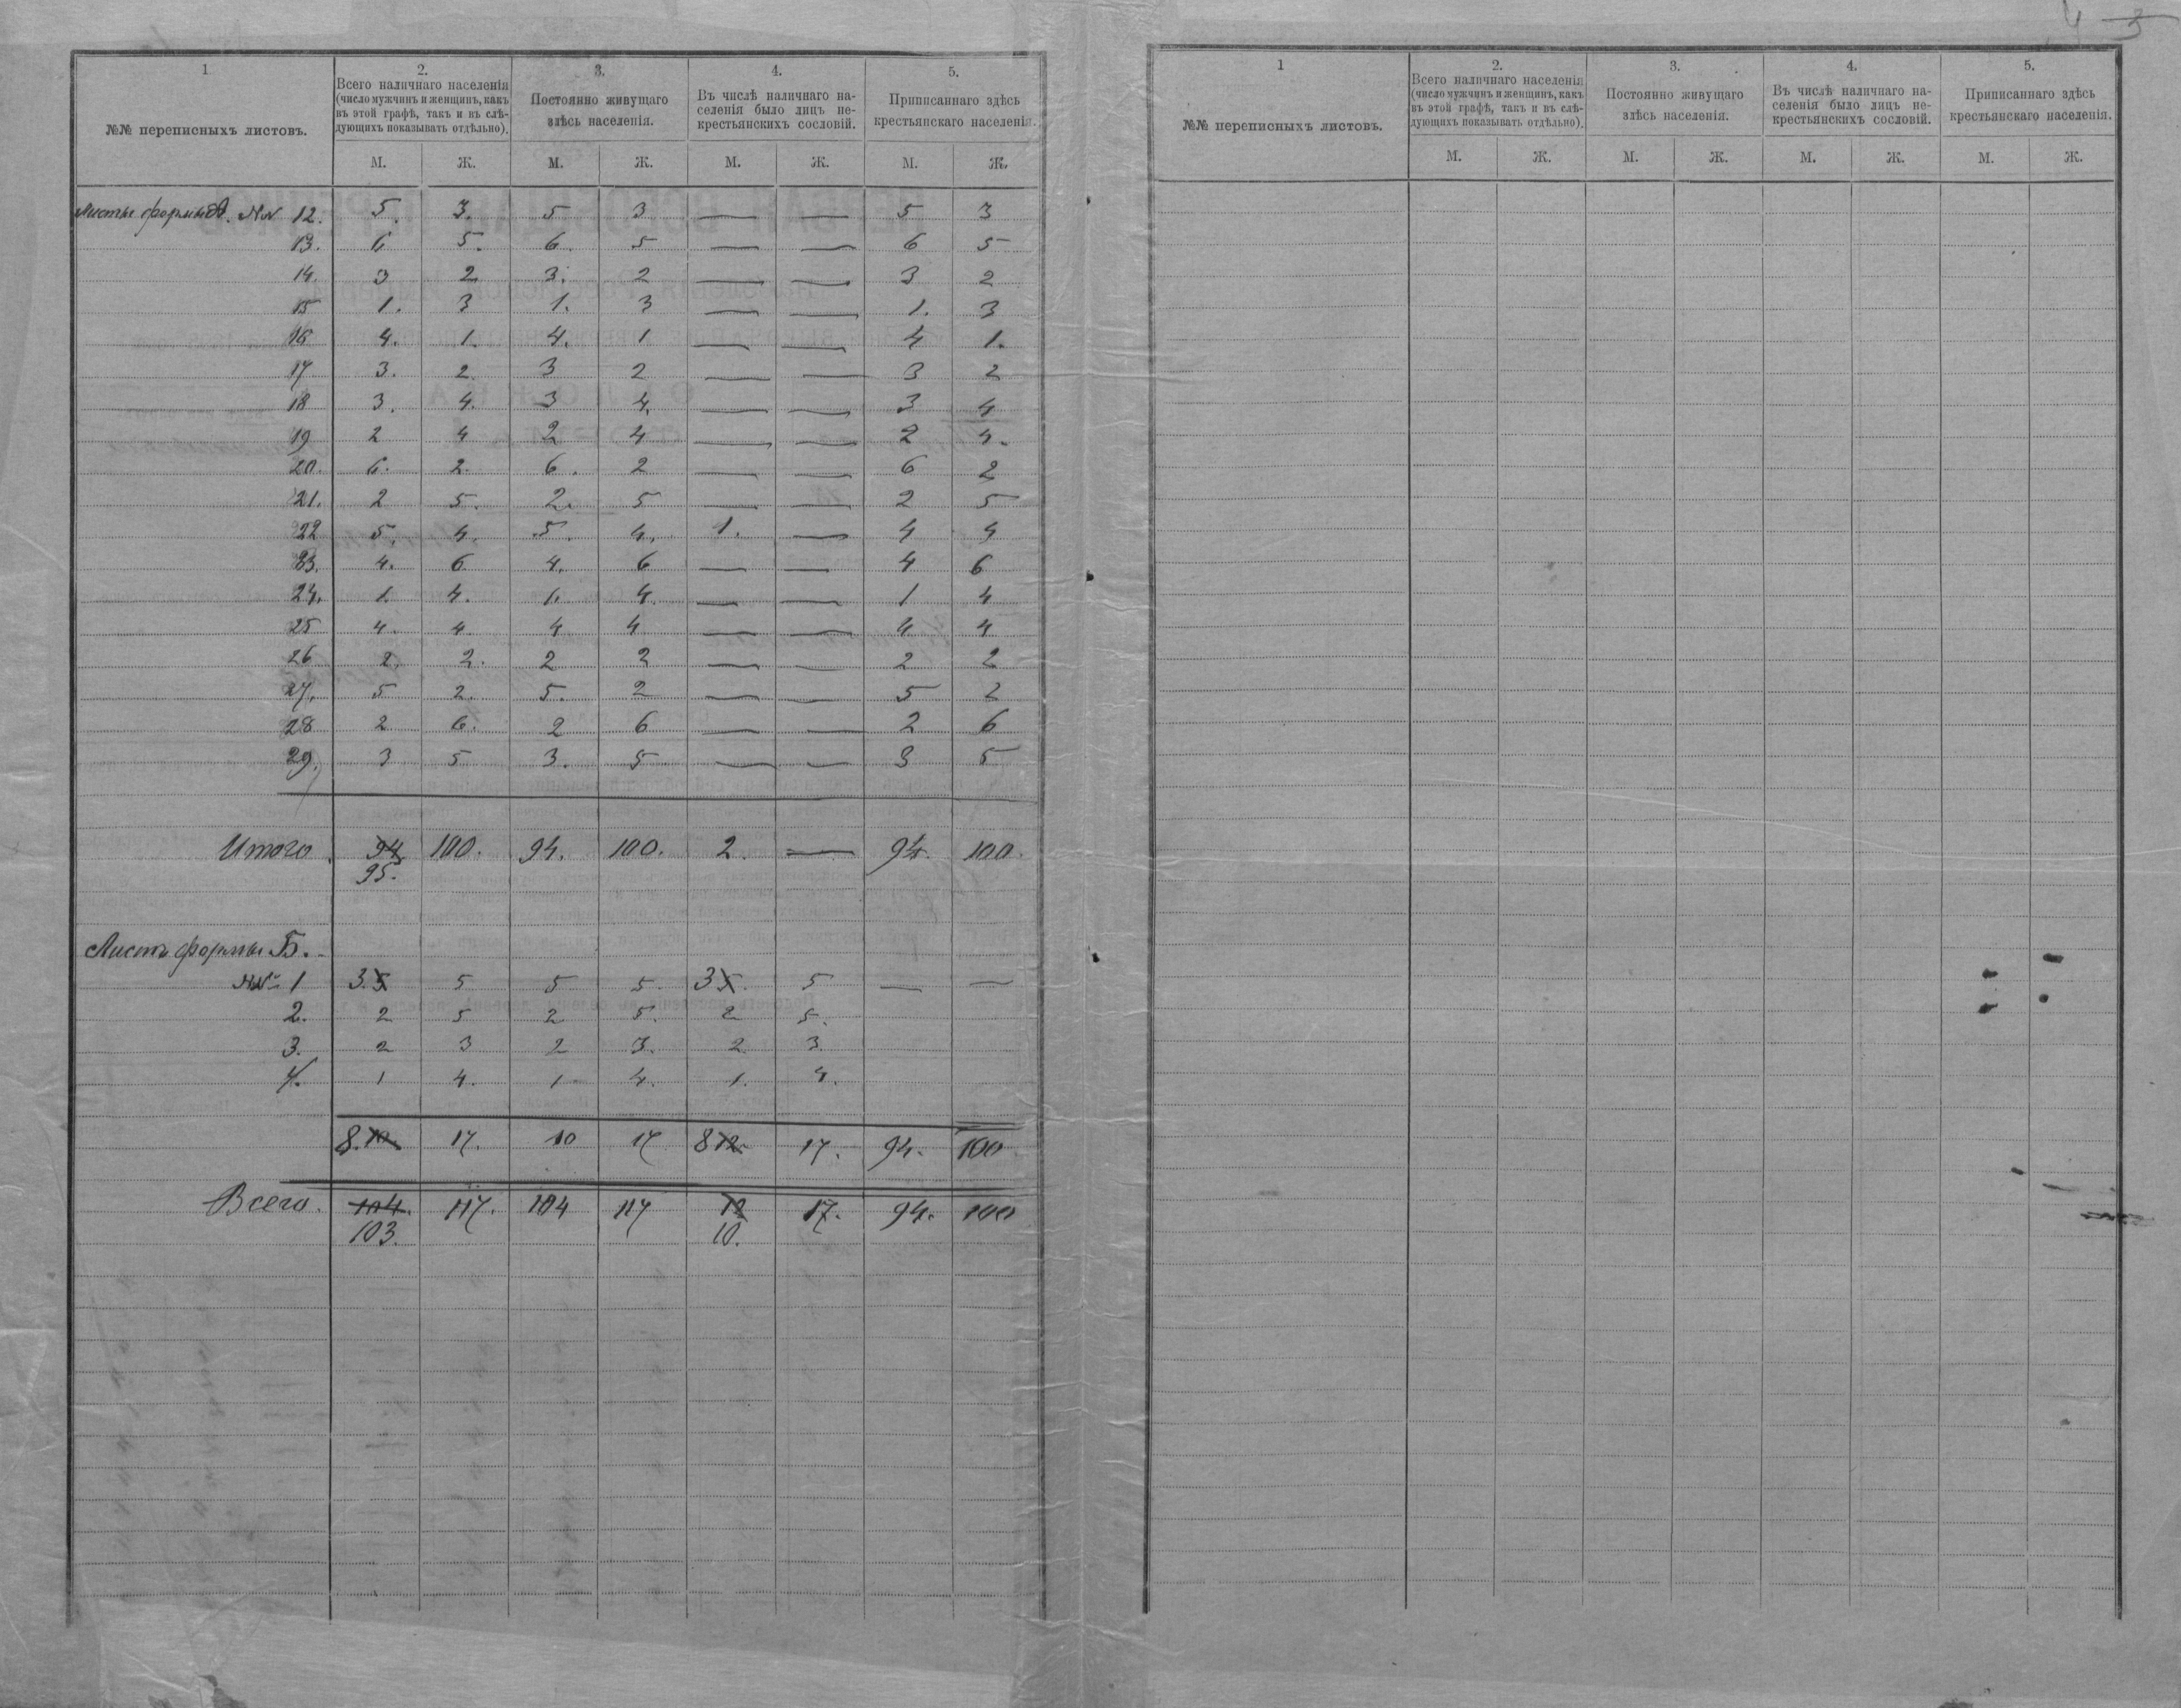 4 3
1 2. 3. 4. 5.
№№ переписныхъ листовъ.
Всего наличнаго населенія
(число мужчинъ и женщинъ, какъ
въ этой графѣ, такъ и въ слѣ-
дующихъ показывать отдѣльно).
Постоянно живущаго
здѣсь населенія.
Въ числѣ наличнаго на-
селенія было лицъ не-
крестьянскихъ сословій.
Приписаннаго здѣсь
крестьянскаго населенія.
М. Ж. М. Ж. М. Ж. М. Ж.
Листы формы А. №№ 12. 5. 3. 5 3 — — 5 3
13. 6 5. 6. 5 — — 6 5
14. 3 2 3. 2 — — 3 2
15 1. 3 1. 3 — — 1. 3
16 4. 1. 4. 1 — — 4 1.
17 3. 2 3 2 — — 3 2
18 3. 4. 3 4. — — 3 4
19 2 4 2 4 — — 2 4.
20. 6. 2. 6. 2 — — 6 2
21. 2 5. 2. 5 — — 2 5
22 5. 4. 5. 4. 1. — 4 4
23. 4. 6 4. 6 — — 4 6
24. 1. 4. 1. 4. — — 1 4
25 4. 4. 4 4 — — 4 4
26 2. 2. 2 2 — — 2 2
27. 5 2. 5. 2 — — 5 2
28 2 6. 2 6 — — 2 6
29. 3 5 3. 5 — — 3 5
Итого 94 100. 94. 100. 2. — 94. 100.
95.
Листъ формы Б.
№№ 1 3. 5 5 5 5. 3 5. 5 — —
2. 2 5 2 5. 2 5.
3. 2 3 2 3. 2 3
4. 1 4. 1 4. 1. 4.
8. 10 17. 10 17 8 12. 17. 94. 100
Всего. 104. 117. 104 117 12 17. 94. 100
103. 10.
1 2. 3. 4. 5.
№№ переписныхъ листовъ.
Всего наличнаго населенія
(число мужчинъ и женщинъ, какъ
въ этой графѣ, такъ и въ слѣ-
дующихъ показывать отдѣльно).
Постоянно живущаго
здѣсь населенія.
Въ числѣ наличнаго на-
селенія было лицъ не-
крестьянскихъ сословій.
Приписаннаго здѣсь
крестьянскаго населенія.
М. Ж. М. Ж. М. Ж. М. Ж.